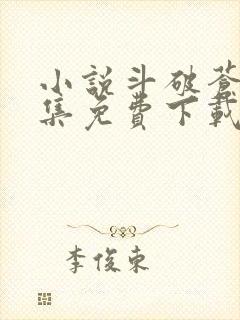 小說斗破蒼
集免費下載
李俊東